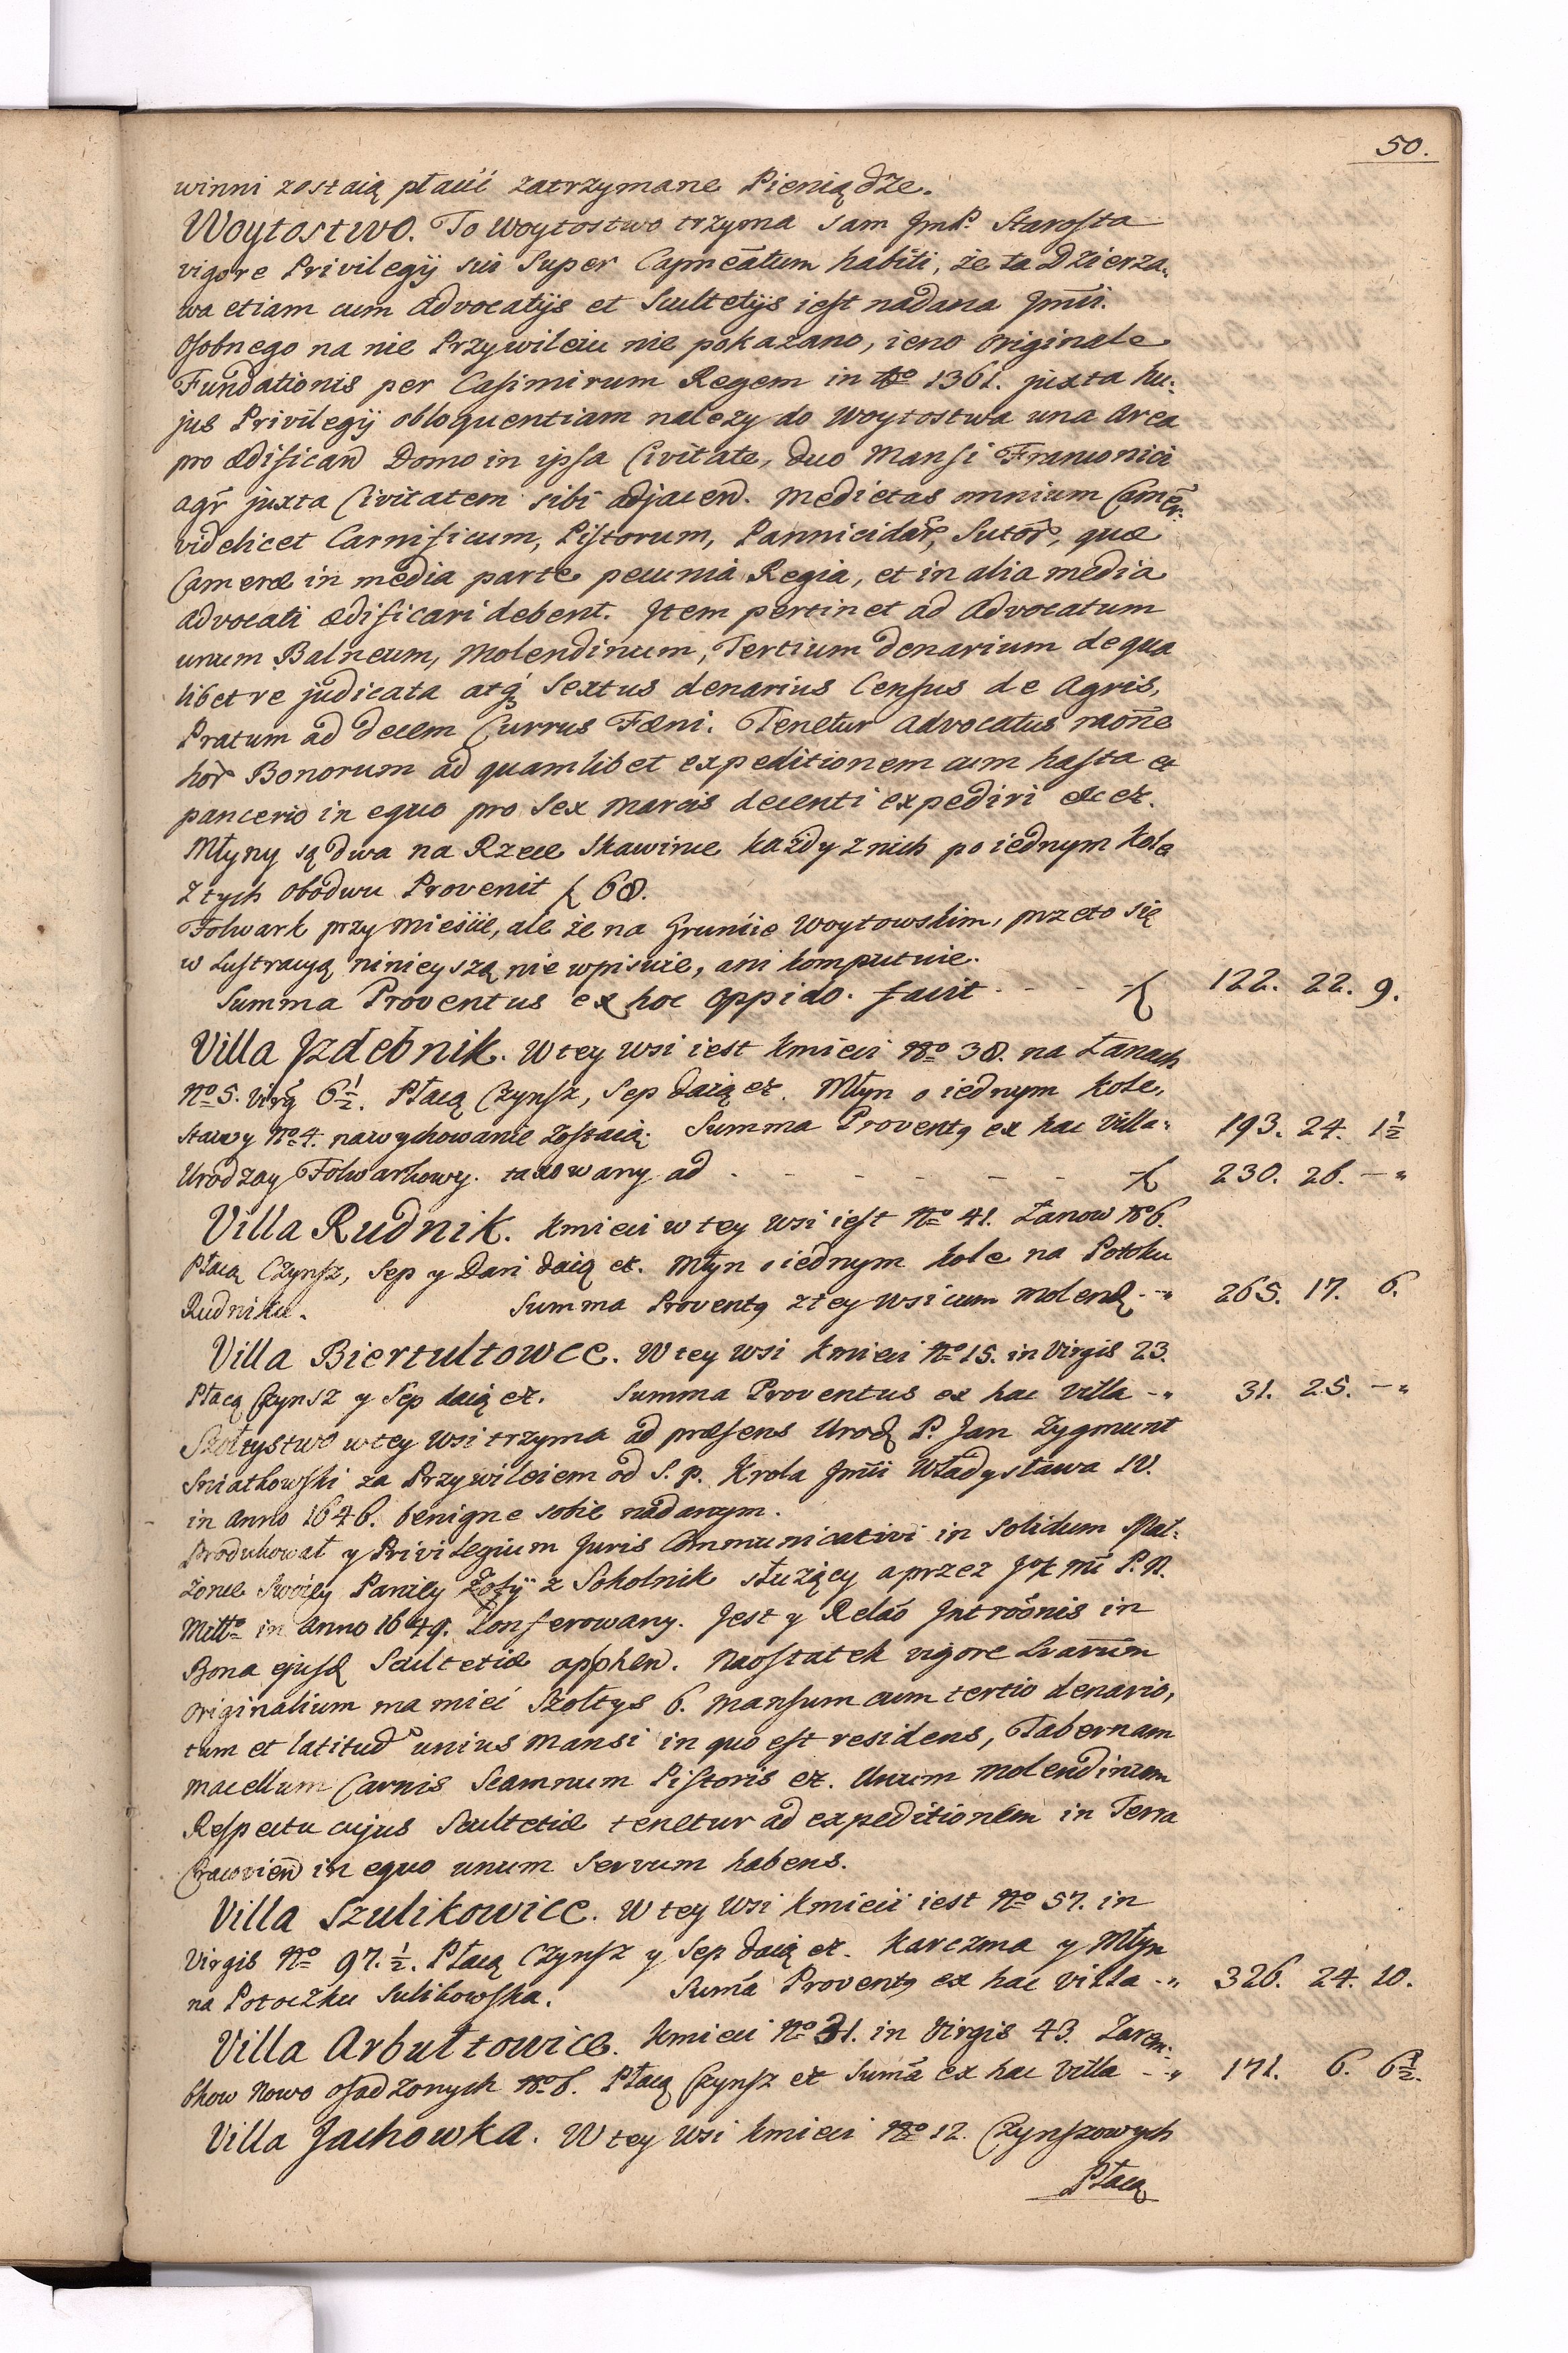 50.
winni zostaią płacić zatrzymane Pieniądze.
Woytostwo. To Woytostwo trzyma sam JmP. Starosta
vigore Privilegij sui super Capnēatum habiti, że ta Dzierza,
wa etiam cum Advocatijs et Scultetijs iest nadana Jmći.
Osobnego na nie Przywileiu nie pokazano, ieno originale
Fundationis per Casimirum Regem in Ao 1361. juxta hu:
jus Privilegij obloquentiam nalezy do Woytostwa una Area
pro ædifican̄d Domo in ipsa Civitate, duo Mansi Franconici
agr̄ juxta Civitatem sibi adjacen̄d. Medietas omnium Camēr:
videlicet Carnificum, Pistorum, Pannicidar̄, Sutor̄, quæ
Cameræ in media parte pecunia Regia, et in alia media
Advocati ædificari debent. Jtem pertinet ad Advocatum
unum Balneum, Molendinum, Tertium denarium de qua
libet re judicata atq́ Sextus denarius Census de Agris,
Pratum ad decem Currus Fæni. Tenetur Advocatus raōne
hor̄ Bonorum ad quamlibet expeditionem cum hasta et
pancerio in equo pro Sex Marcis decenti expediri etc et.
Młyny są dwa na Rzece Skawince każdy z nich po iednym kole
z tych obodwu Provenit f 68.
Folwark przy mieście, ale że na Gruncie Woytowskim, przeto się
w Lustracyą ninieyszą nie wpisuie, ani komputuie.
Summa Proventus ex hoc Oppido. facit - - - f 122. 22. 9.
Villa Jzdebnik. W tey Wsi iest kmieci No 38. na Łanach
No 5. Virg̃ 6 1/2. Płacą Czynsz, Sep daią et. Młyn o iednym kole,
stawy No 4. na wychowanie zostaią. Summa Proventq ex hac Villa. 193. 24. 1 1/2
Urodzay Folwarkowy. taxowany ad - - - - - - f 230. 26. - "
Villa Rudnik. Kmieci w tey wsi iest No 41. Łanow No 6.
Płacą Czynsz, Sep y Dani daią et. Młyn o iednym kole na Potoku
Rudniku. Summa Proventq z tey wsi cum Molend - " 265. 17. 6.
Villa Biertultowce. W tey Wsi kmieci No 15. in Virgis 23.
Płacą Czynsz y Sep daią et. Summa Proventus ex hac Villa - " 31. 25. - "
Szołtystwo w tey Wsi trzyma ad præsens Urod P. Jan Zygmunt
Sniatkowski za Przywileiem od S. p. Krola Jmći Władysława IV.
in Anno 1646. benigne sobie nadanym.
Produkował y Privilegium Juris Communicativi in solidum Mał:
zonce Swoiey Paniey Zofij z Sokolnik służący a przez JoK Mć P. N.
Miłto in Anno 1649. konferowany. Jest y Relaō Introōnis in
Bona ejusd Scultetiæ apphen̄. Naostatek vigore Lrarūm
originalium ma mieć Szołtys 6. Mansum cum tertio denario,
tum et latitud unius Mansi in quo est residens, Tabernam
macellum Carnis Scamnum Pistoris et. Unum Molendinum
Respectu cujus Scultetiæ tenetur ad expeditionem in Terra
Cracovien̄ in equo unum Servum habens.
Villa Szulikowice. W tey Wsi kmieci iest No 57. in
Virgis No 97. 1/2. Płacą Czynsz y Sep daią et. Karczma y Młyn
na Potoczku Sulikowska. Sum̄a Proventq ex hac Villa - " 326. 24. 10.
Villa Arbultowice. Kmieci No 31. in Virgis 43. Zarem:
bkow Nowo osadzonych No 8. Płacą Czynsz et Sum̄a ex hac Villa - " 171. 6. 6 1/2.
Villa Jachowka. W tey Wsi kmieci No 12. Czynszowych
Płacą